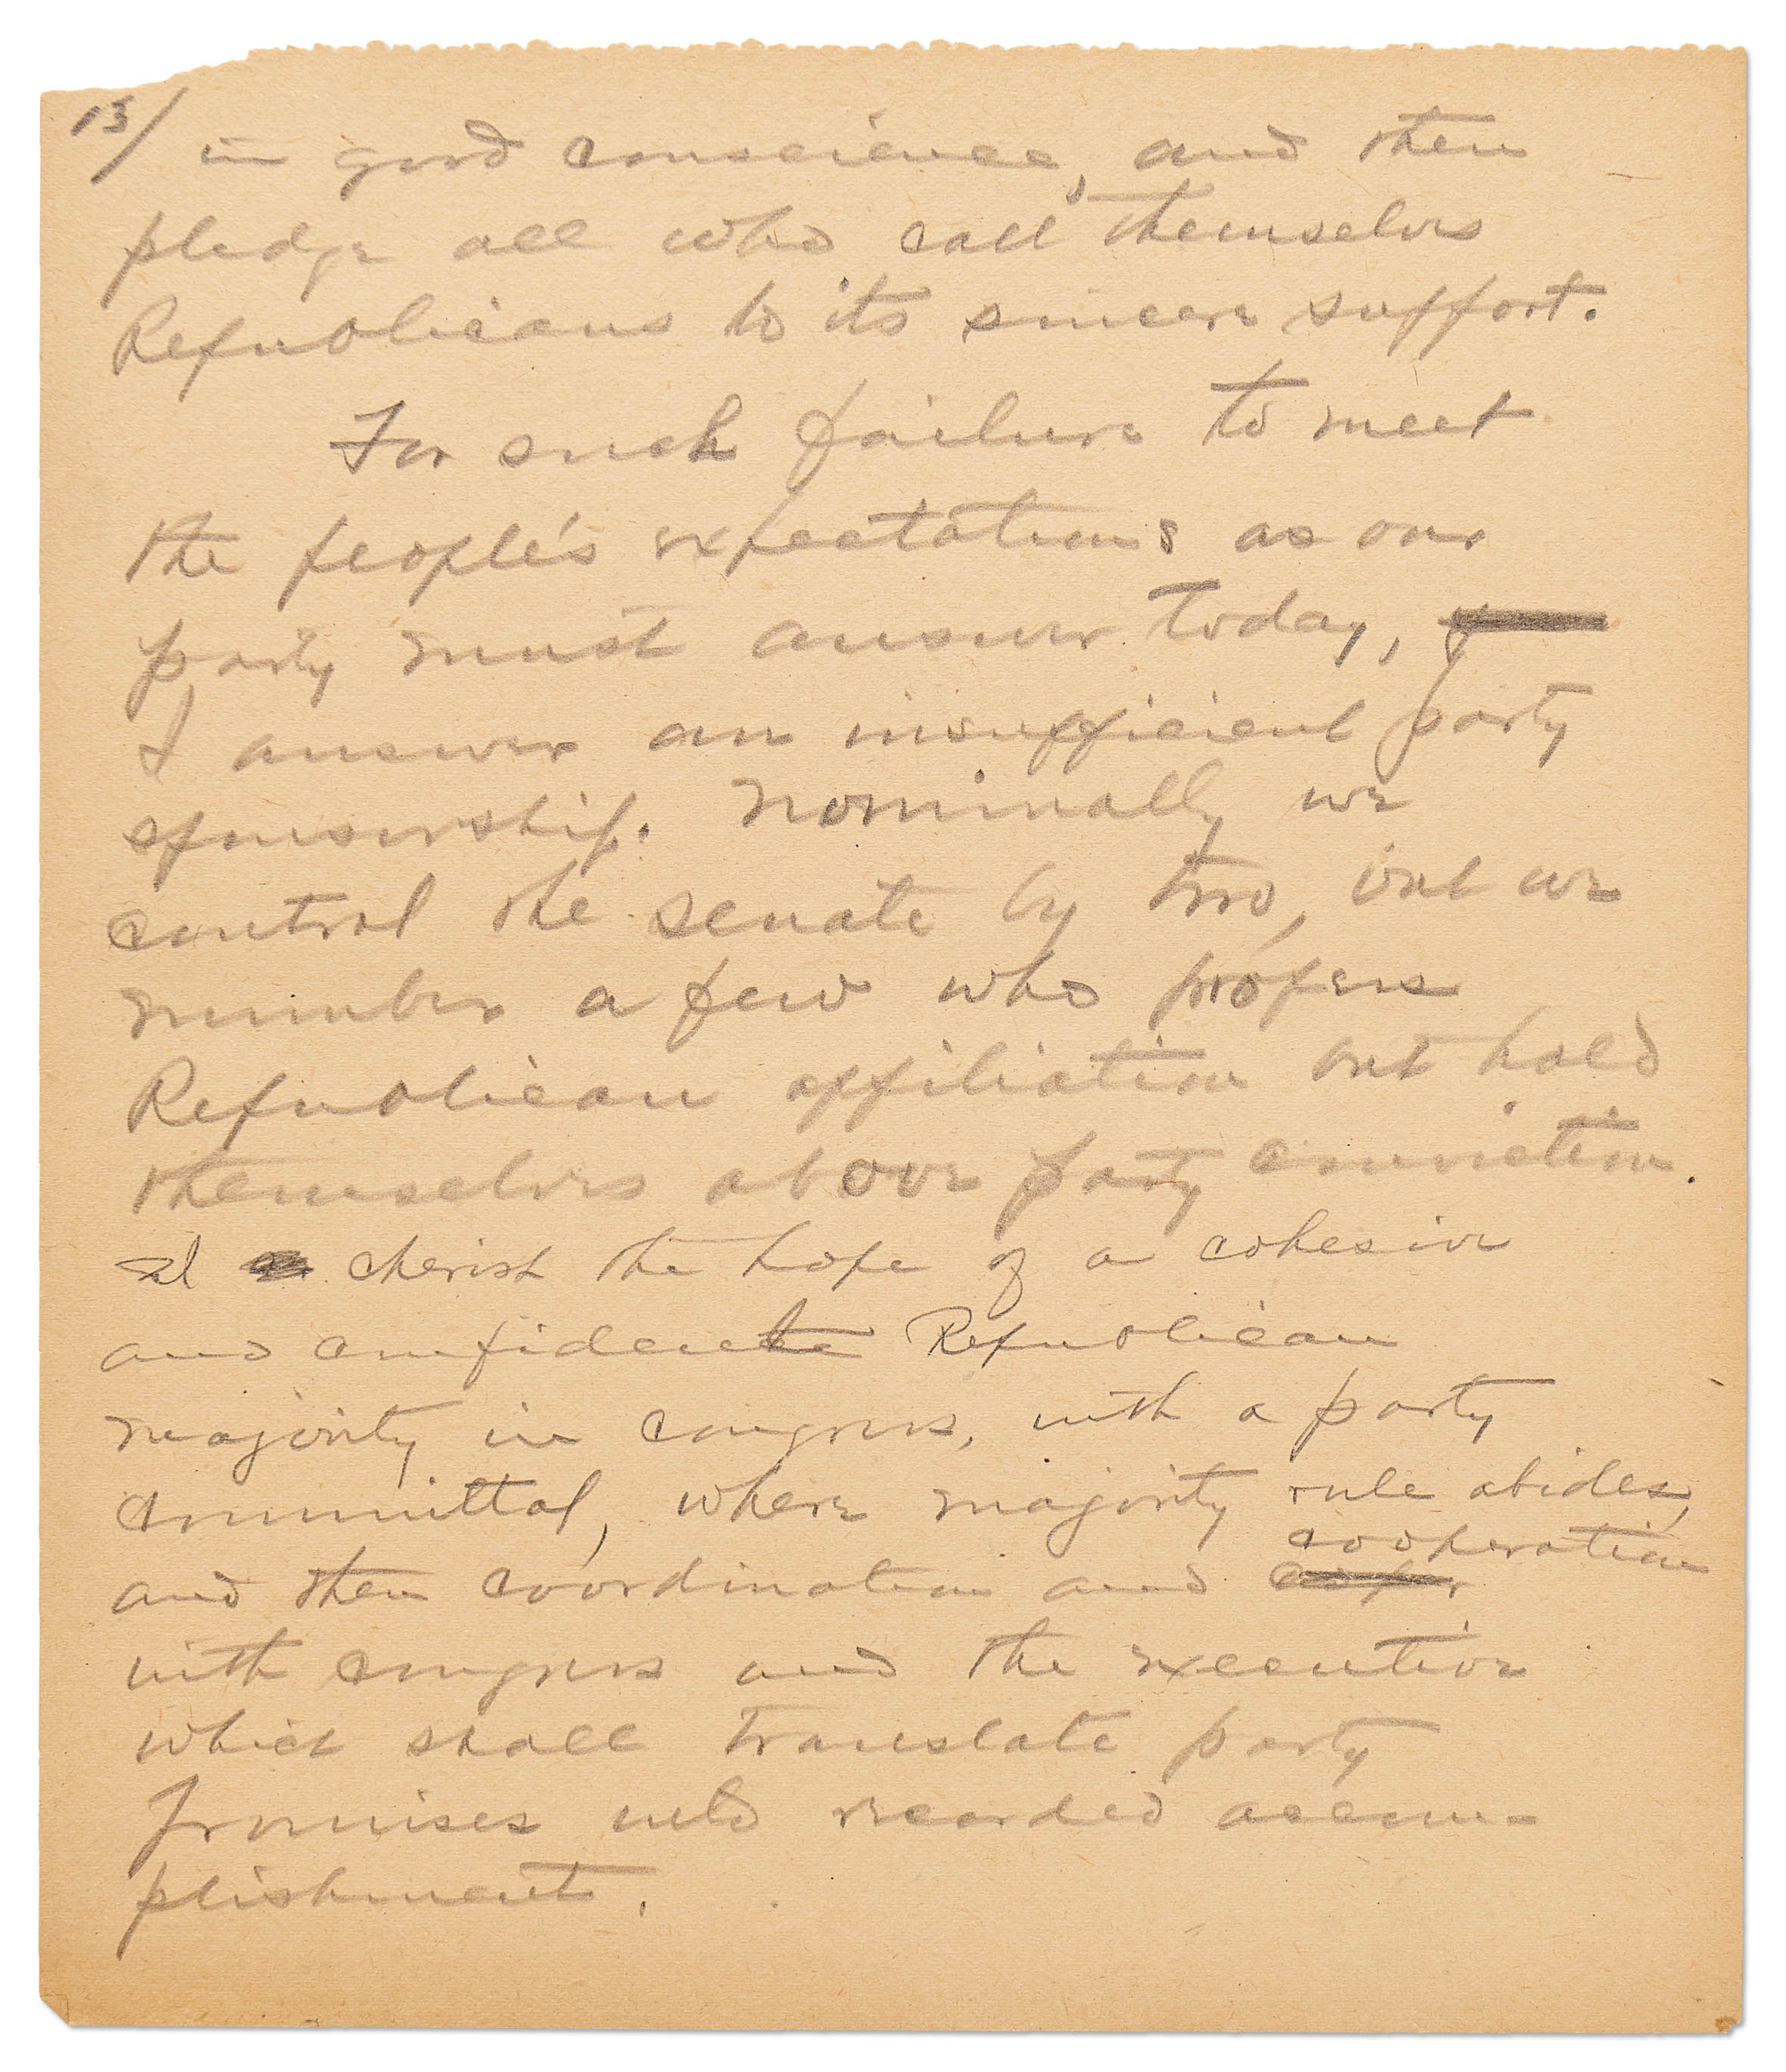 13/ in good conscience, and then
pledge all who call themselves
Republicans to its sincere support.
For such failure to meet
the people's expectations as our
party must answer today,
I answer an insufficient party
sponsorship. Nominally we
control the senate by two, but we
number a few who profess
Republican affiliation but hold
themselves above party conviction.
I cherish the hope of a cohesive
and confident Republican
majority in congress, with a party
committal, where majority rule abides,
cooperation
and then coördination and
with congress and the executive
which shall translate party
promises into recorded accom-
plishment.